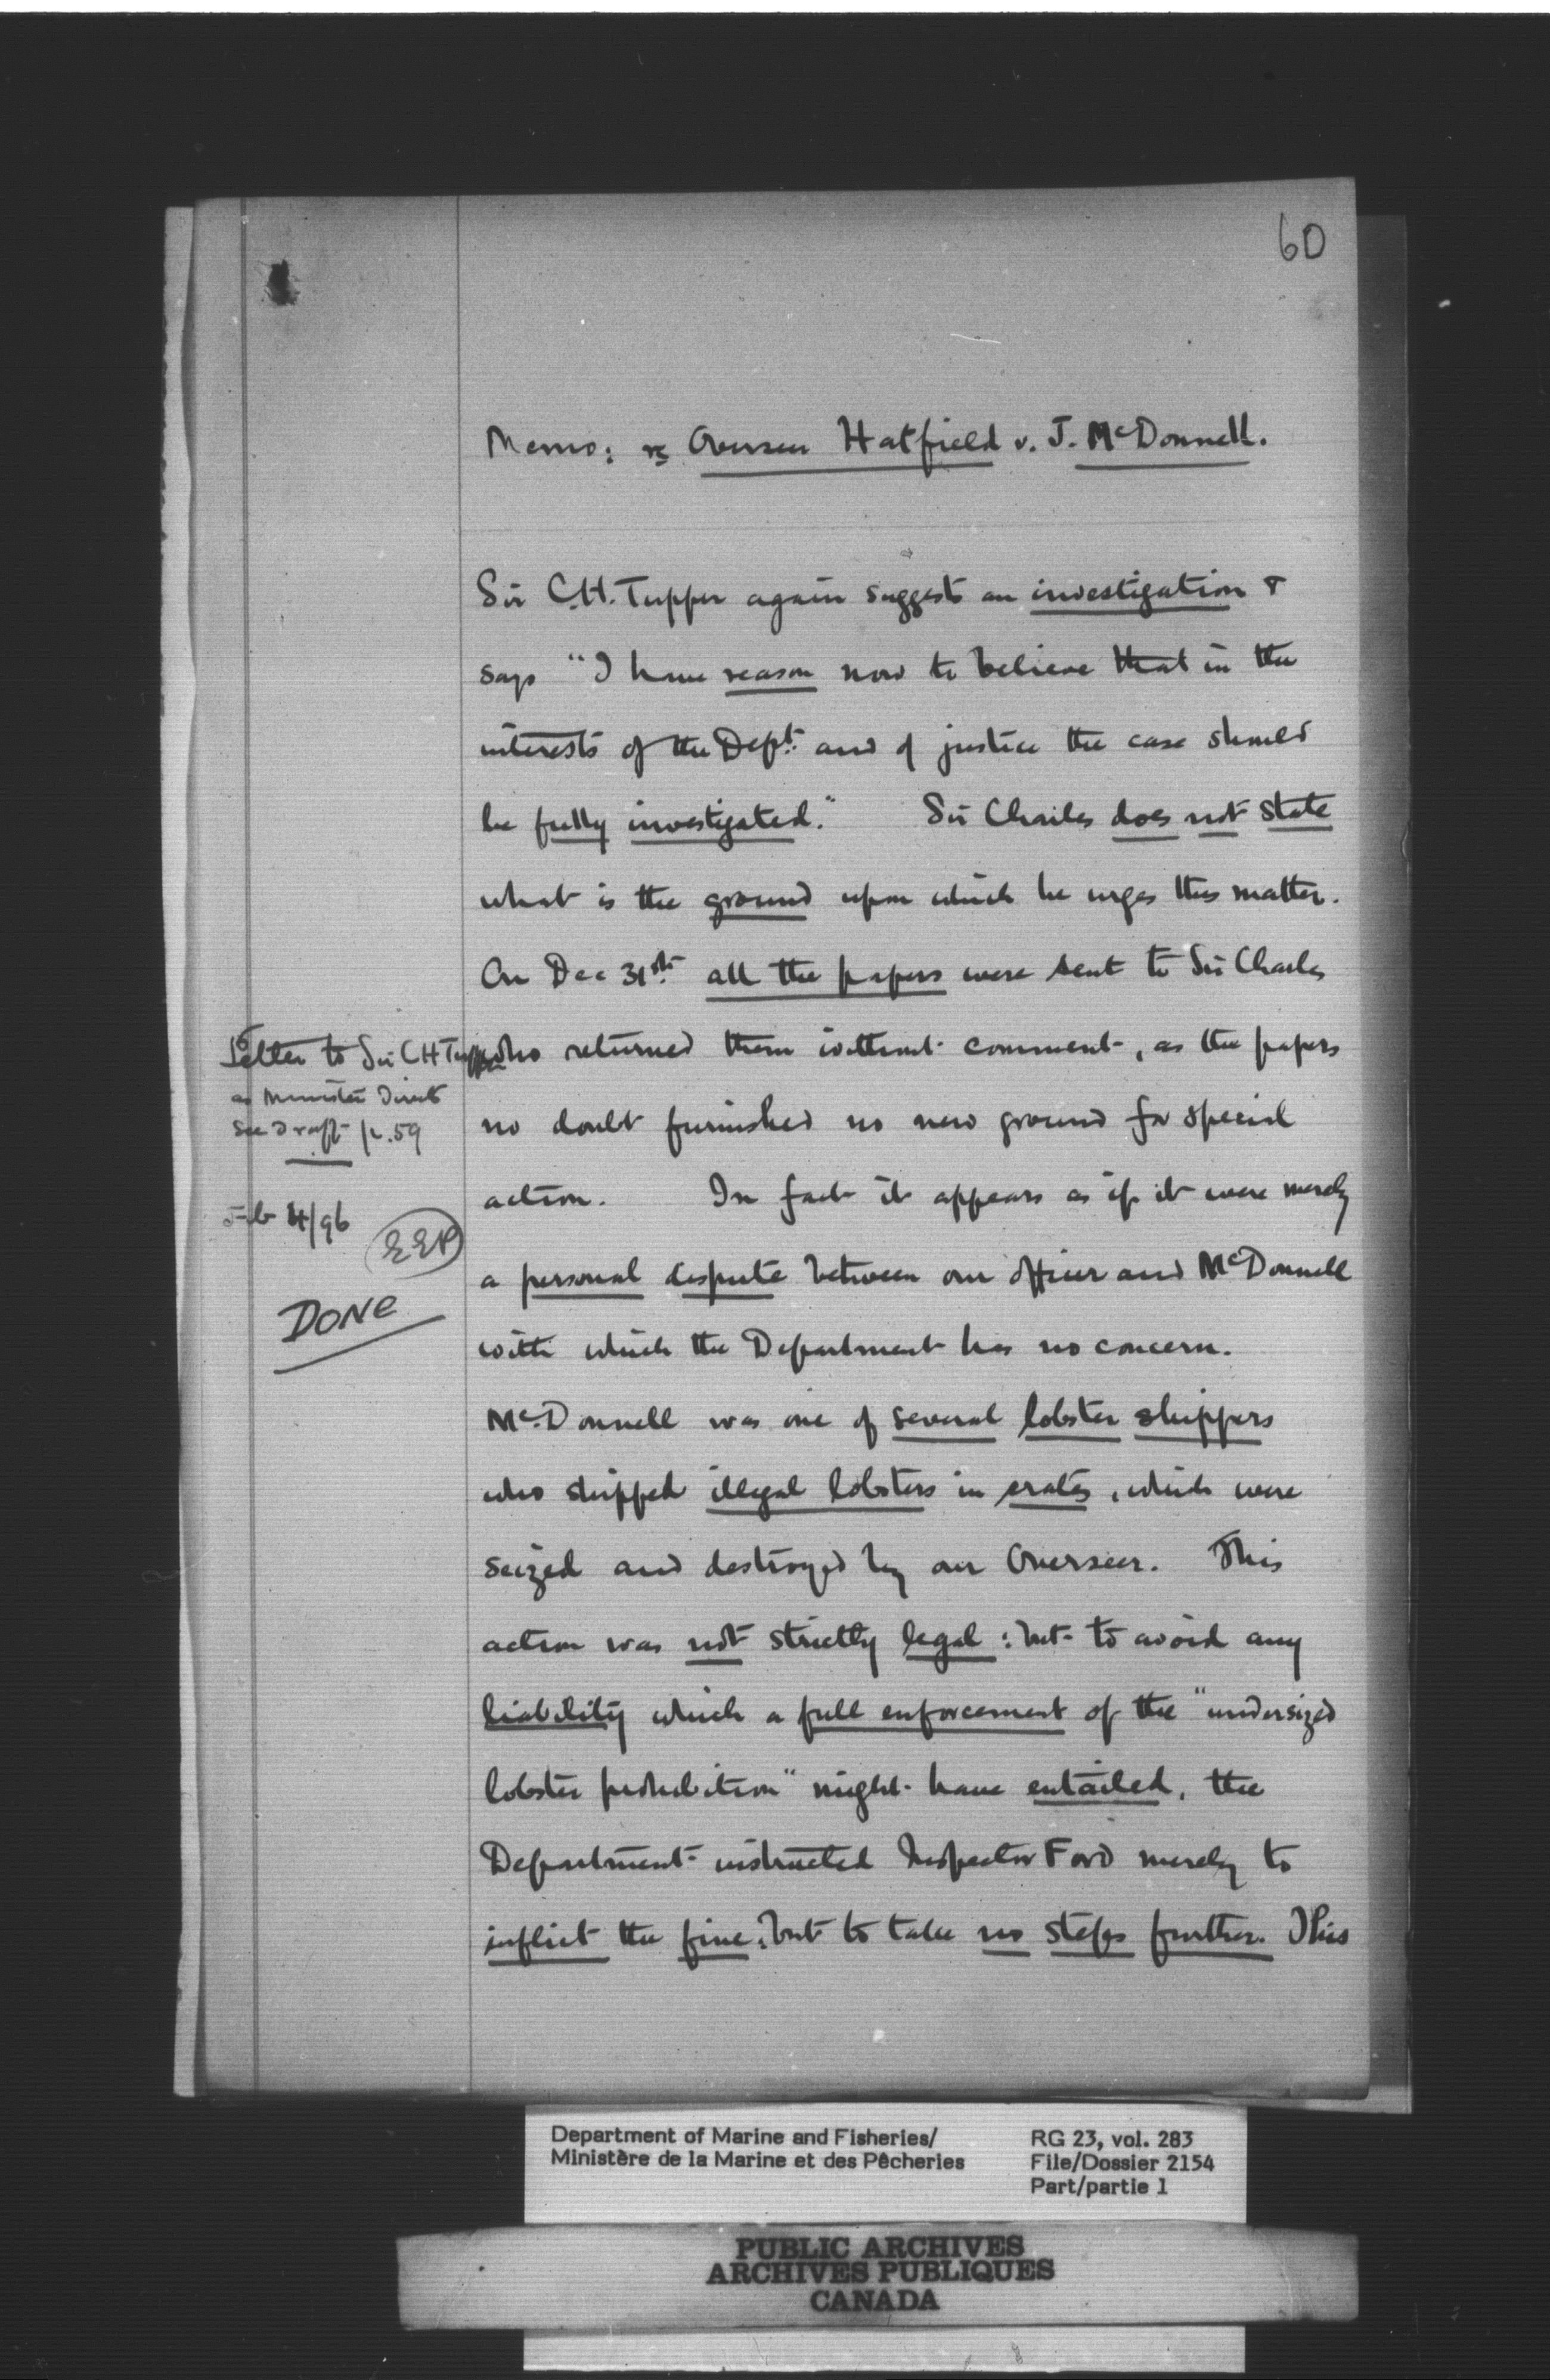 60
Memo: re Overseer Hatfield v. J. McDonnell.
Sir C.H. Tupper again suggests an investigation &
says "I have reason now to believe that in the
interests of the Dept. and of justice the case should
be fully investigated." Sir Charles does not state
what is the ground upon which he urges this matter.
On Dec 31st. all the papers were sent to Sir Charles
who returned them without comment, as the papers
no doubt furnished no new ground for special
action. In fact it appears as if it were merely
a personal dispute between our officer and McDonnell
with which the Department has no concern.
McDonnell was one of several lobster shippers
who shipped illegal lobsters in crates, which were
seized and destroyed by our Overseer. This
action was not strictly legal: but to avoid any
liability which a full enforcement of the "undersized
lobster prohibition" might have entailed, the
Department instructed Inspector Ford merely to
inflict the fine: but to take no steps further. This
Letter to Sir CH Tupper
as Minister Directs
See Draft p. 59
Feb 4/96
EEP
DONE
Department of Marine and Fisheries/
Ministère de la Marine et des Pêcheries
RG 23, vol. 283
File/Dossier 2154
Part/partie 1
PUBLIC ARCHIVES
ARCHIVES PUBLIQUES
CANADA